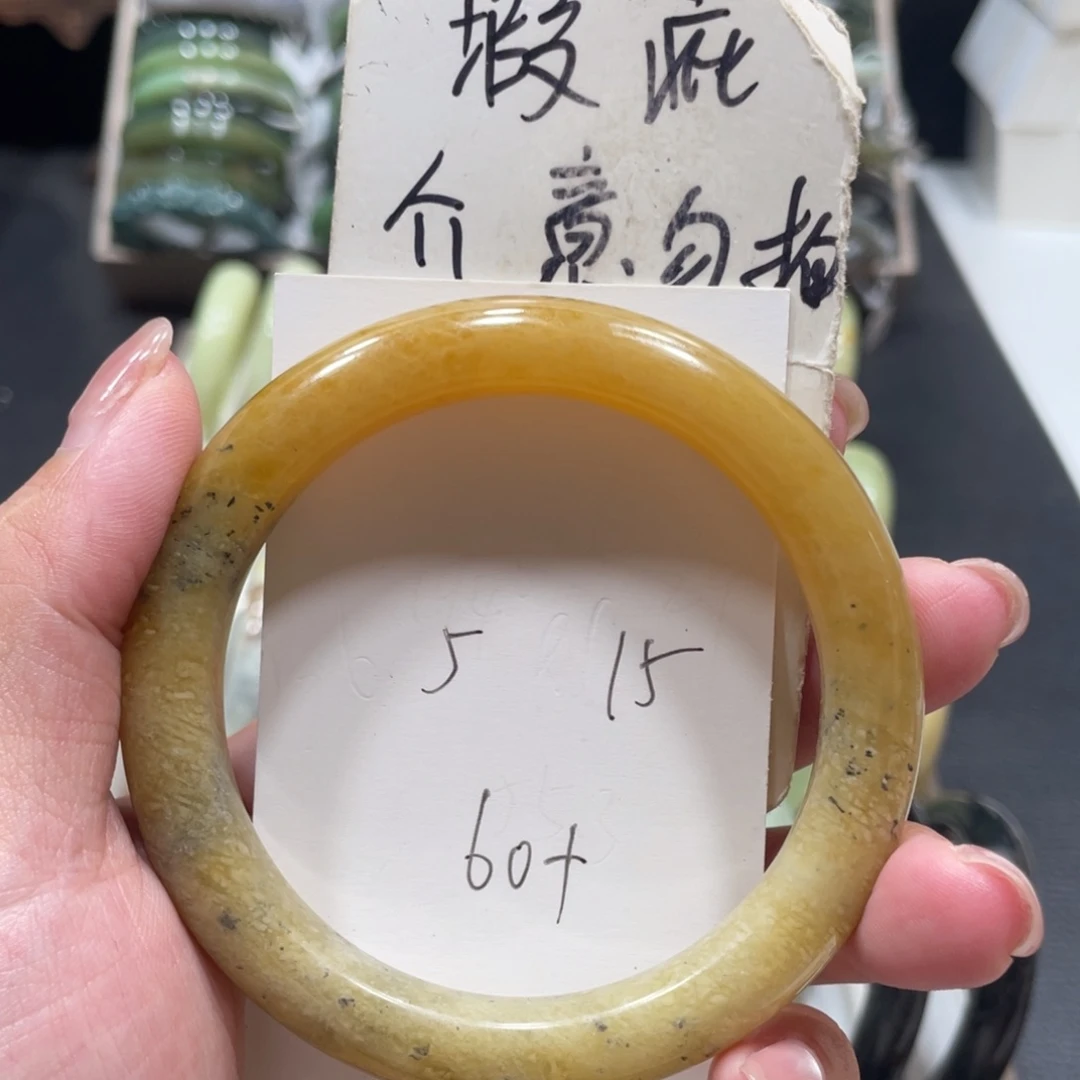 瑕疵
介意勿拍
5 15
60+